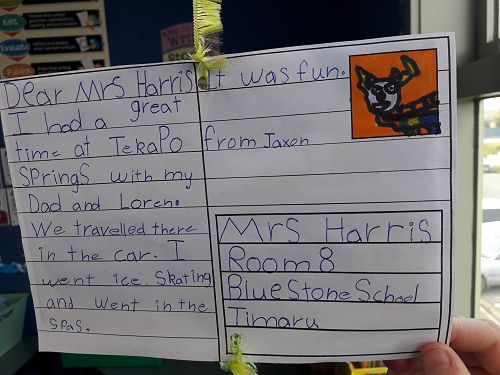 Edit
Evaluate
Publish
Dear Mrs Harris
I had a great
time at Tekapo
Springs with my
Dad and Loren.
We travelled there
in the car. I
went ice skating
and went in the
spas.
It was fun.
from Jaxon
Mrs Harris
Room 8
Bluestone School
Timaru